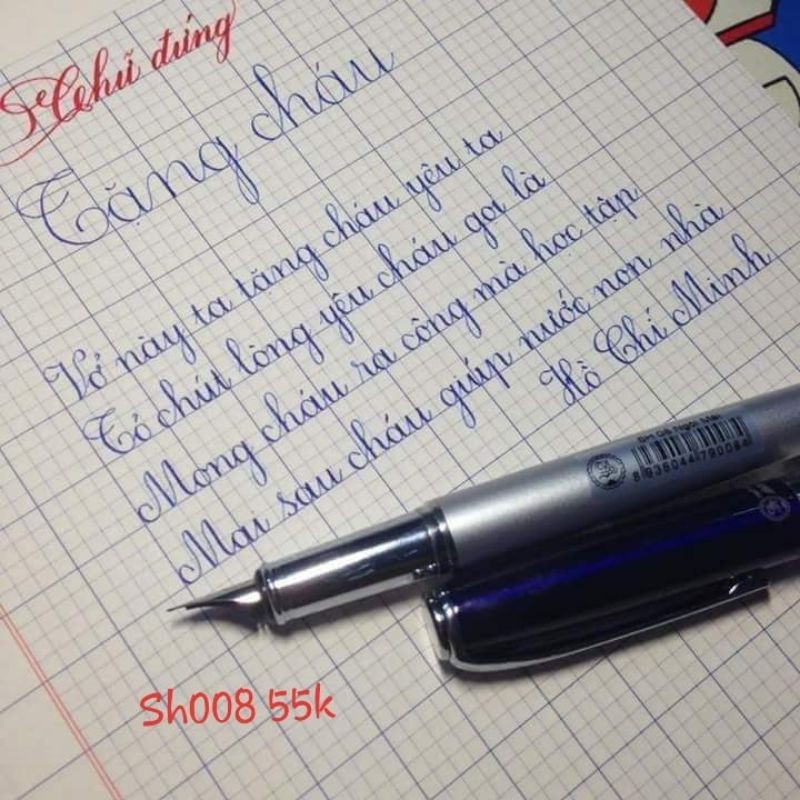 Chữ đứng
Tặng cháu
Vở này ta tặng cháu yêu ta
Tỏ chút lòng yêu cháu gọi là
Mong cháu ra công mà học tập
Mai sau cháu giúp nước non nhà
Hồ Chí Minh
8 936044 790084
Sh008 55k